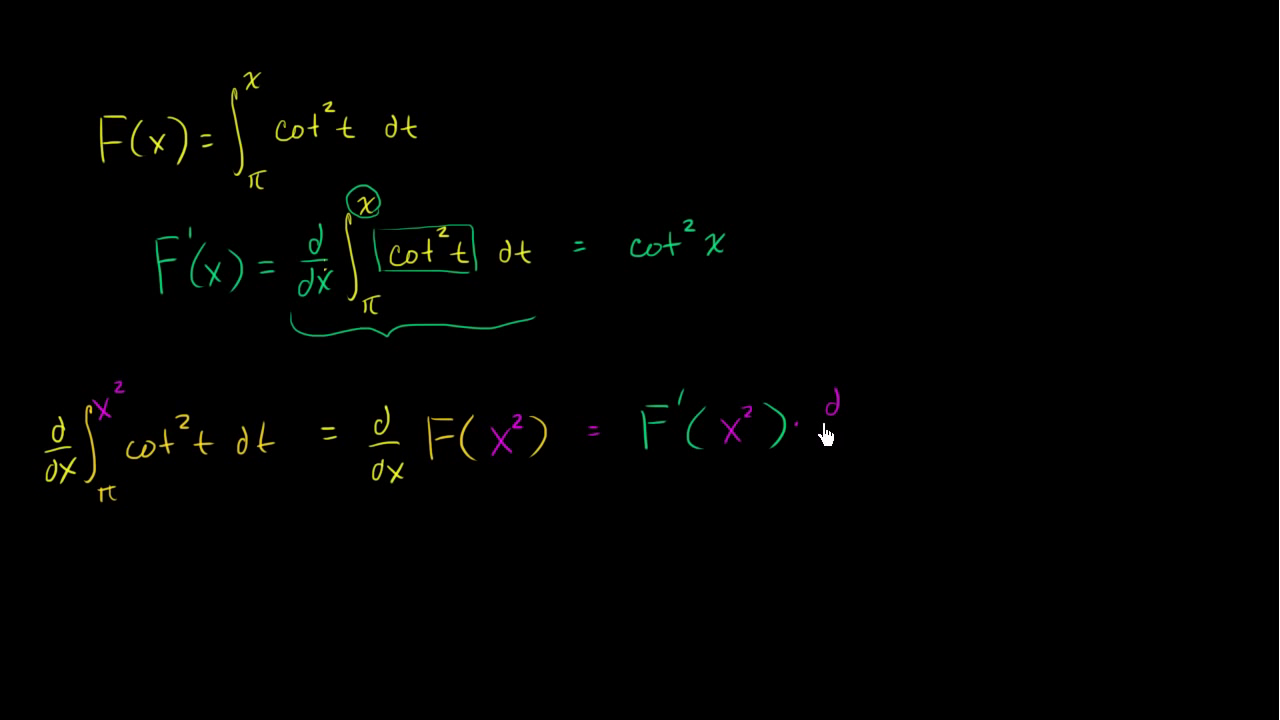 F(x) = ∫_π^x cot² t dt
F'(x) = d/dx ∫_π^x cot² t dt = cot² x
d/dx ∫_π^{x²} cot² t dt = d/dx F(x²) = F'(x²) · d